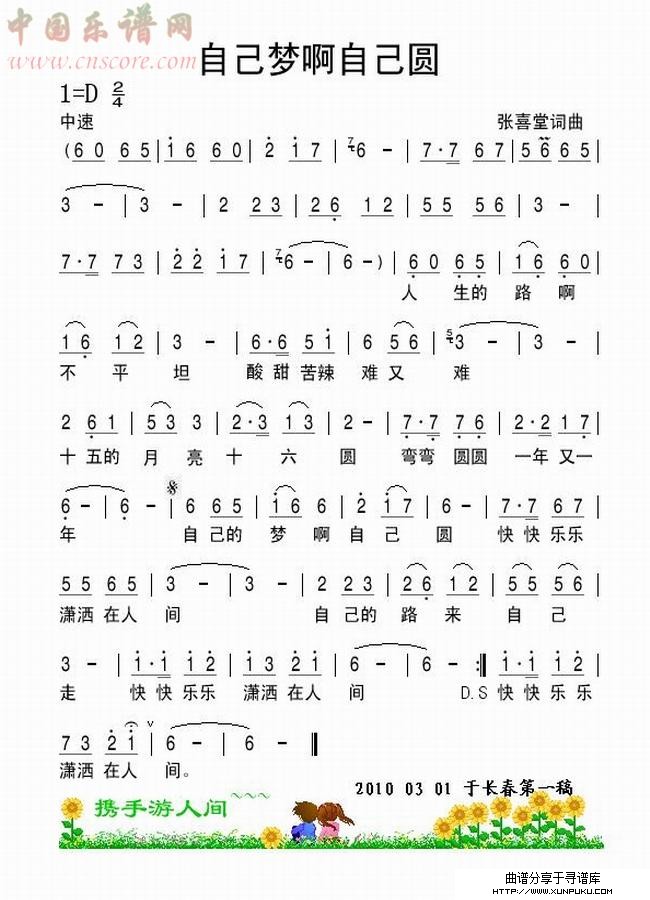 中国乐谱网
www.cnscore.com
自己梦啊自己圆
1=D 2/4
中速
张喜堂词曲
(6 0 6 5 | 1 6 6 0 | 2 1 7 | 7 6 - | 7·7 6 7 | 5 6 6 6 5 |
3 - | 3 - | 2 2 3 | 2 6 1 2 | 5 5 5 6 | 3 - |
7·7 7 3 | 2 2 1 7 | 7 6 - | 6 - ) | 6 0 6 5 | 1 6 6 0 |
人 生的 路 啊
1 6 1 2 | 3 - | 6·6 5 1 | 6 5 6 | 5 3 - | 3 - |
不 平 坦 酸 甜 苦辣 难 又 难
2 6 1 | 5 3 3 | 2·3 1 3 | 2 - | 7·7 7 6 | 2·2 1 7 |
十 五的 月 亮 十 六 圆 弯弯 圆圆 一年 又一
6 - | 6 - | 6 6 5 | 1 6 6 | 2 1 7 | 6 - | 7·7 6 7 |
年 自 己的 梦 啊 自 己 圆 快 快 乐乐
5 5 6 5 | 3 - | 3 - | 2 2 3 | 2 6 1 2 | 5 5 5 6 |
潇洒 在人 间 自 己的 路 来 自 己
3 - | 1·1 1 2 | 1 3 2 1 | 6 - | 6 - :| 1·1 1 2 |
走 快 快 乐乐 潇洒 在人 间 D.S 快快 乐 乐
7 3 2 1 | 6 - | 6 - ‖
潇洒 在人 间。
2010 03 01 于长春第一稿
携手游人间~~~
曲谱分享于寻谱库
HTTP://WWW.XUNPUKU.COM